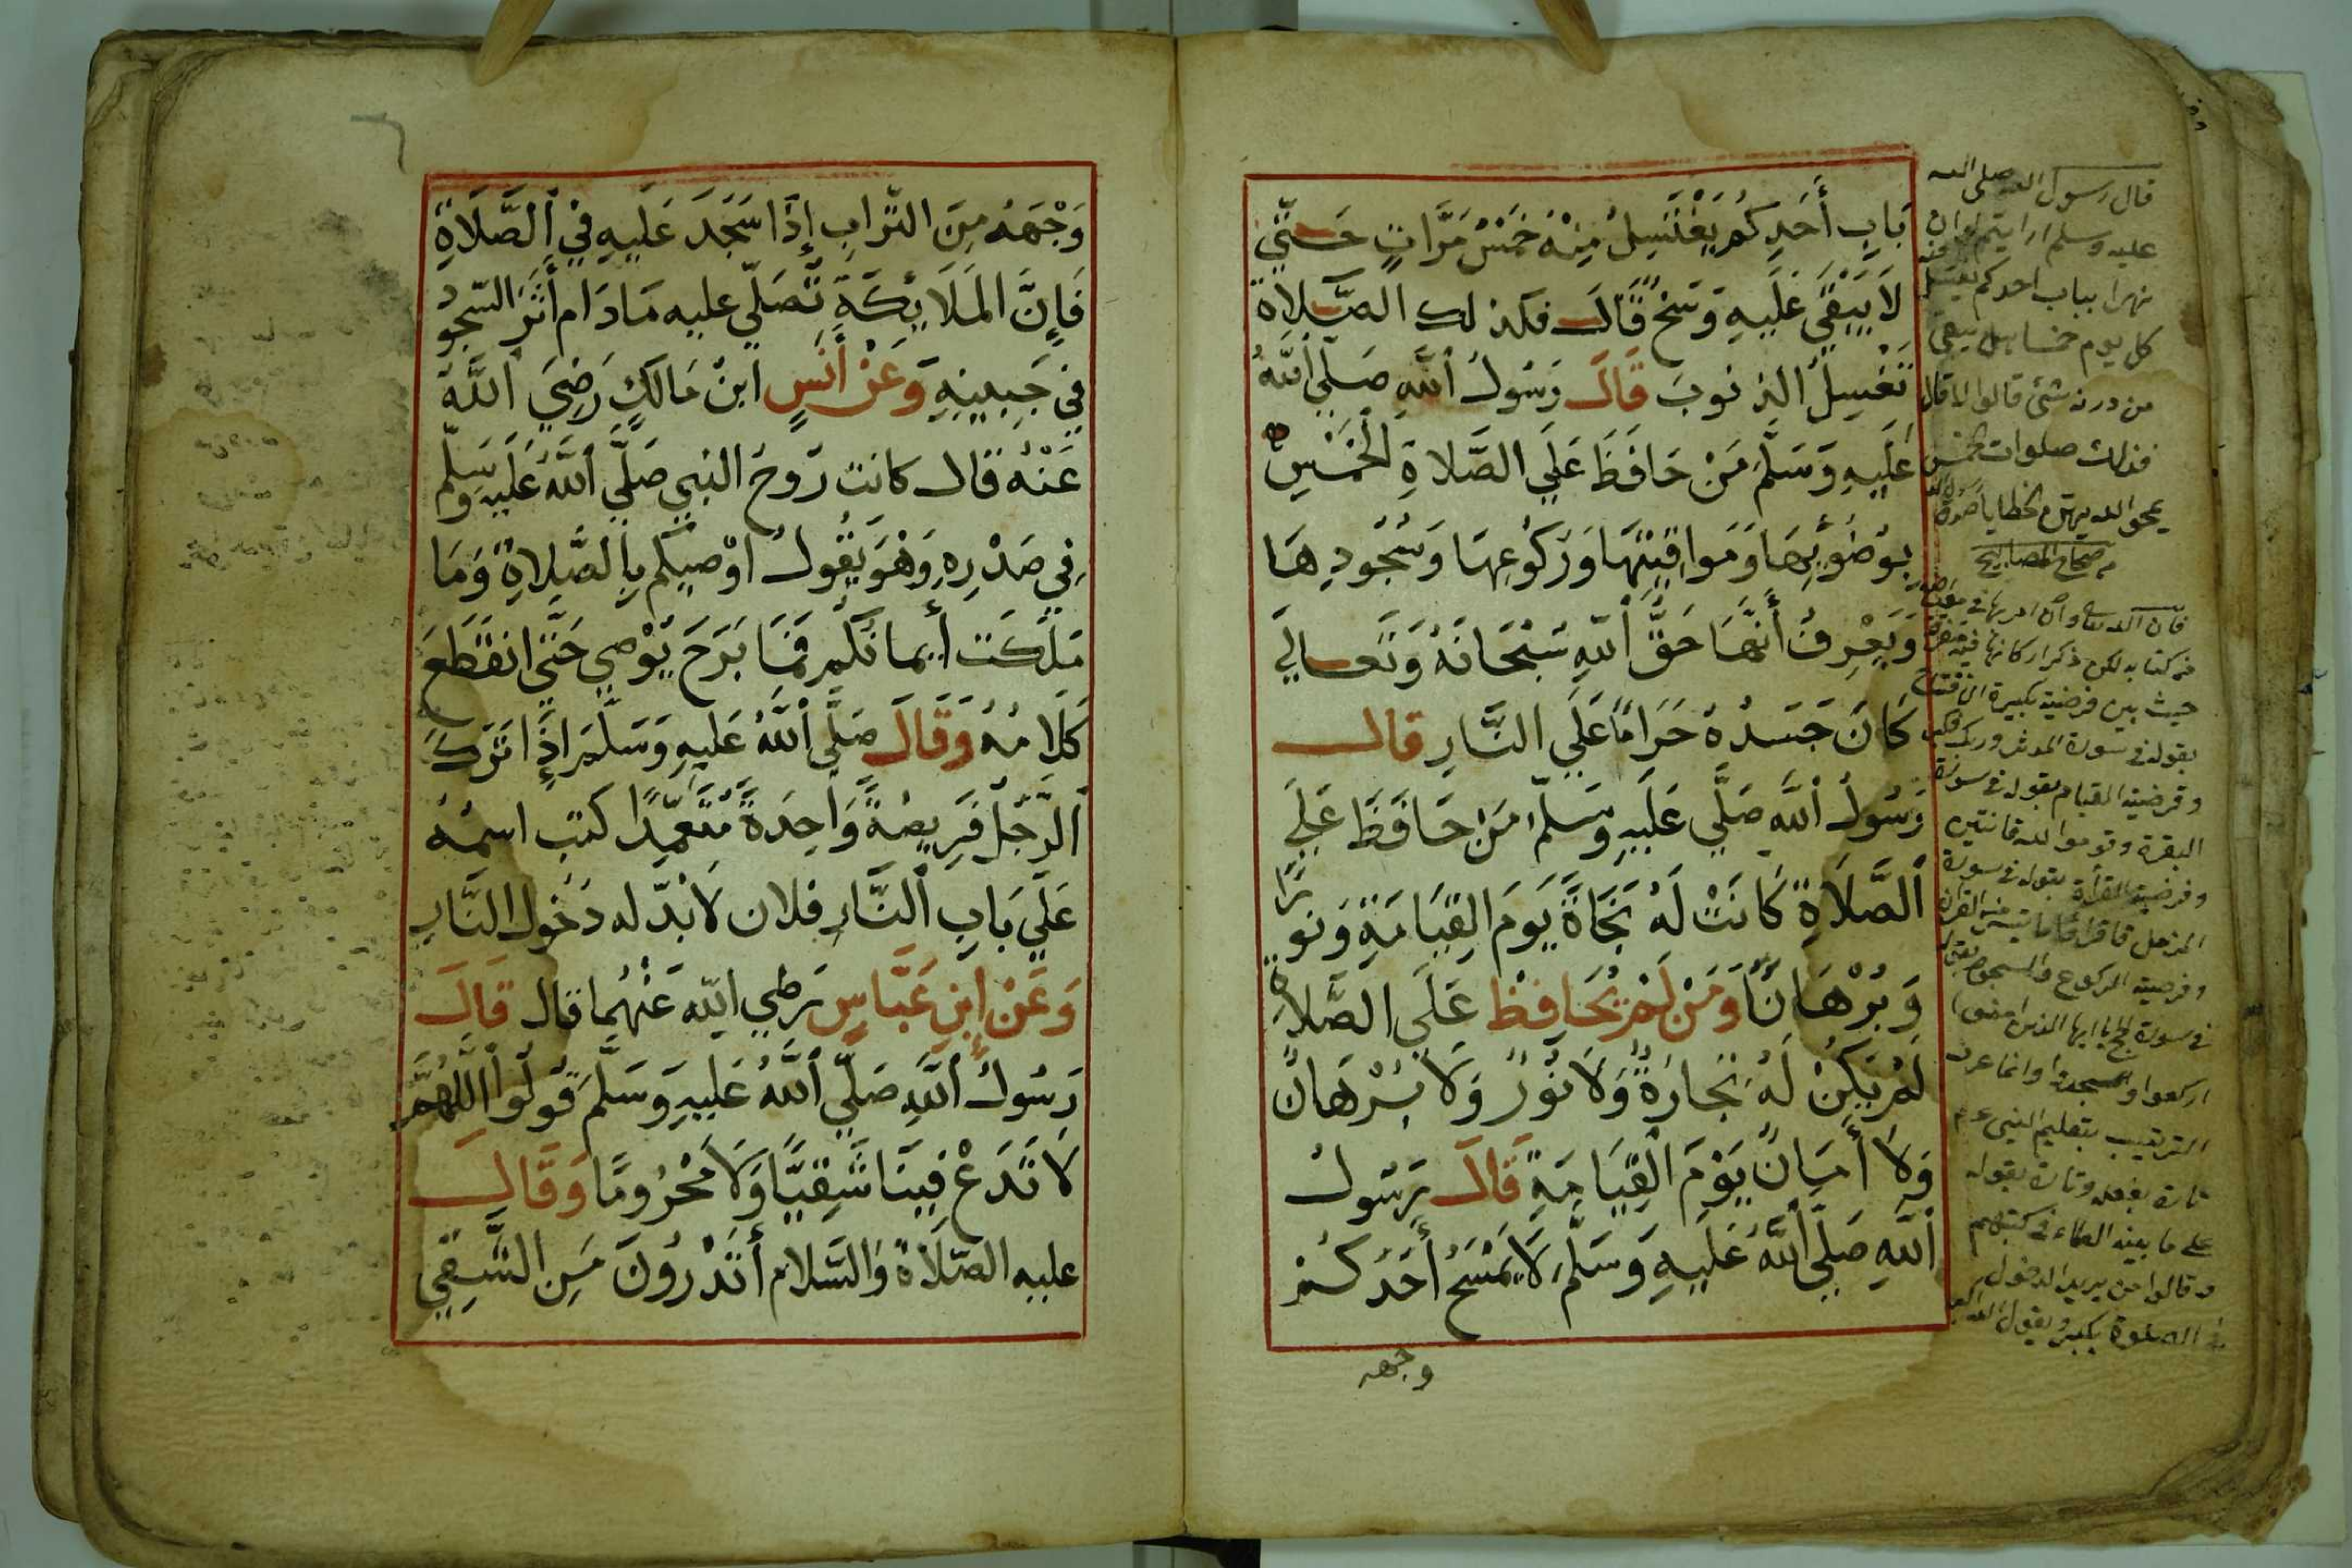 بَابِ أَحَدِكُمْ يَغْتَسِلُ مِنْهُ خَمْسَ مَرَّاتٍ حَتّي
لَا يَبْقَي عَلَيهِ وَسَخٌ قَالَ فكذلك الصَّلاة
تَغْسِلُ الذنوبَ قَالَ رَسُولُ اللهِ صَلَّي اللهُ
عَلَيهِ وَسَلَّمَ مَنْ حَافَظَ عَلَي الصَّلاةِ الْخَمْسِ
بوُضُوئِهَا وَمَوَاقِيتِهَا وَرُكُوعِهَا وَسُجُودِهَا
وَيَعْرِفُ أَنَّهَا حَقُّ اللهِ سُبْحَانَهُ وَتَعَالَي
كَانَ جَسَدُهُ حَرَامًا عَلَي النَّارِ قال
رَسُولُ اللهِ صَلَّي عَلَيهِ وسَلّم مَنْ حَافَظَ عَلَي
الصَّلَاةِ كَانَتْ لَهُ نَجَاةً يَومَ القِيَامَةِ وَنورًا
وَبُرْهَانًا وَمَنْ لَمْ يُحَافِظْ عَلَي الصَّلاةِ
لَمْ يَكُنْ لَهُ نَجَارَةٌ وَلَا نُوْرٌ وَلَا بُرْهَانٌ
وَلَا أَمَانٌ يَوْمَ الْقِيَامَةِ قَالَ رَسُولُ
اللهِ صَلَّي اللهُ عَلَيهِ وَسَلَّمَ لَا يَمْسَحُ أَحَدُكُمْ
وجهه
قال رسول الله صلى الله
عليه وسلم ارايتم لو ان
نهرا بباب احدكم يغتسل منه
كل يوم خمسا هل يبقى
من درنه شئ قالوا لا قال
فذلك صلوات الخمس
يمحو الله بهن الخطايا
من صحاح المصابيح
حيث بين فرضية تكبيرة الافتتاح
بقوله في سورة المدثر وربك فكبر
وفرضية القيام بقوله في سورة
البقرة وقوموا لله قانتين
وفرضية القرأة بقوله في سورة
المزمل فاقرؤا ما تيسر من القرآن
وفرضية الركوع والسجود بقوله
في سورة الحج يا ايها الذين امنوا
اركعوا واسجدوا وانما عرف
الترتيب بتعليم النبي عم
تارة بفعله وتارة بقوله
على ما بينه العلماء في كتبهم
وقالوا من يريد الدخول
في الصلوة يكبر ويقول الله اكبر
وَجْهَهُ مِنَ التُّرابِ إِذَا سَجَدَ عَلَيهِ فِي الصَّلَاةِ
فَإِنَّ المَلَايِكَةَ تُصَلّي عليه مَادَام أَثَرُ السّجو
فِي جَبِينِهِ وَعَنْ أَنَسٍ ابنْ مَالكٍ رَضِيَ اللهُ
عَنْهُ قال كانت رَوحُ النبي صَلَّي اللهُ عَلَيهِ وسَلّم
فِي صَدْرِهِ وَهْوَ يَقُولُ اوْصيكم بِالصَّلاةِ وَمَا
مَلَكَت أيمانكُم فَمَا بَرَحَ يَوْصِي حَتَّي انقَطَعَ
كَلَامُهُ وَقَالَ صَلَّي اللهُ عَلَيهِ وَسَلَّمَ إِذَا تَرَكَ
الرَّجُلُ فَرِيضَةً وَاحِدَةً مُتَعَمِّدًا كتب اسمُهُ
عَلَي بَابِ النَّارِ فلان لَابُدّ له دَخُول النَّارِ
وَعَنْ إبنِ عَبَّاسٍ رَضِي الله عَنْهُمَا قال قَالَ
رَسُولُ اللهِ صَلّي اللهُ عَلَيهِ وَسَلَّمَ قُولُوا اللّهُمَّ
لَا تَدَعْ فِينَا شَقِيًّا وَلَا مَحْرُومًا وَقَالَ
عليه الصّلَاةُ والسّلام أتَدْرُونَ مَنِ الشَّقِي